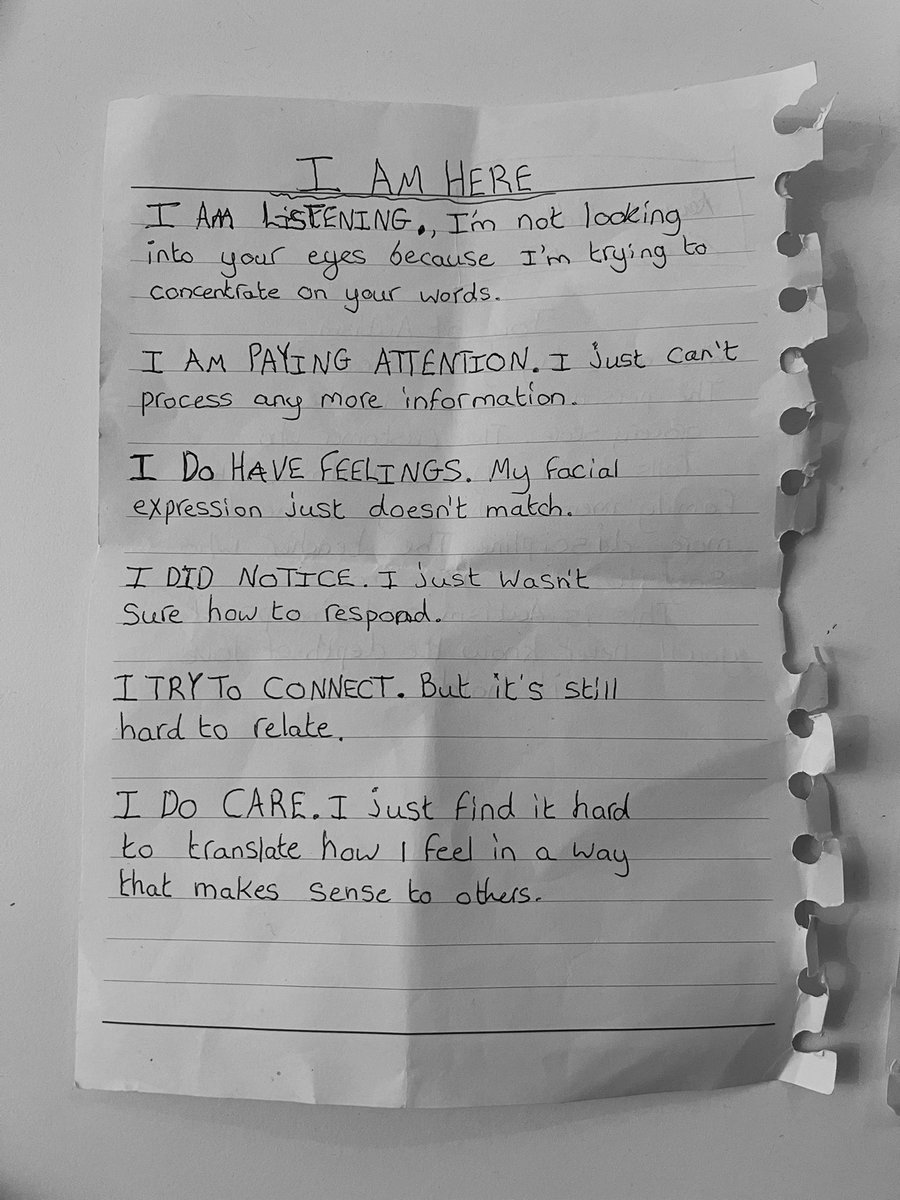 I AM HERE
I AM LISTENING., I'm not looking
into your eyes because I'm trying to
concentrate on your words.
I AM PAYING ATTENTION. I just can't
process any more information.
I DO HAVE FEELINGS. My facial
expression just doesn't match.
I DID NOTICE. I just wasn't
sure how to respond.
I TRY TO CONNECT. But it's still
hard to relate.
I DO CARE. I just find it hard
to translate how I feel in a way
that makes sense to others.